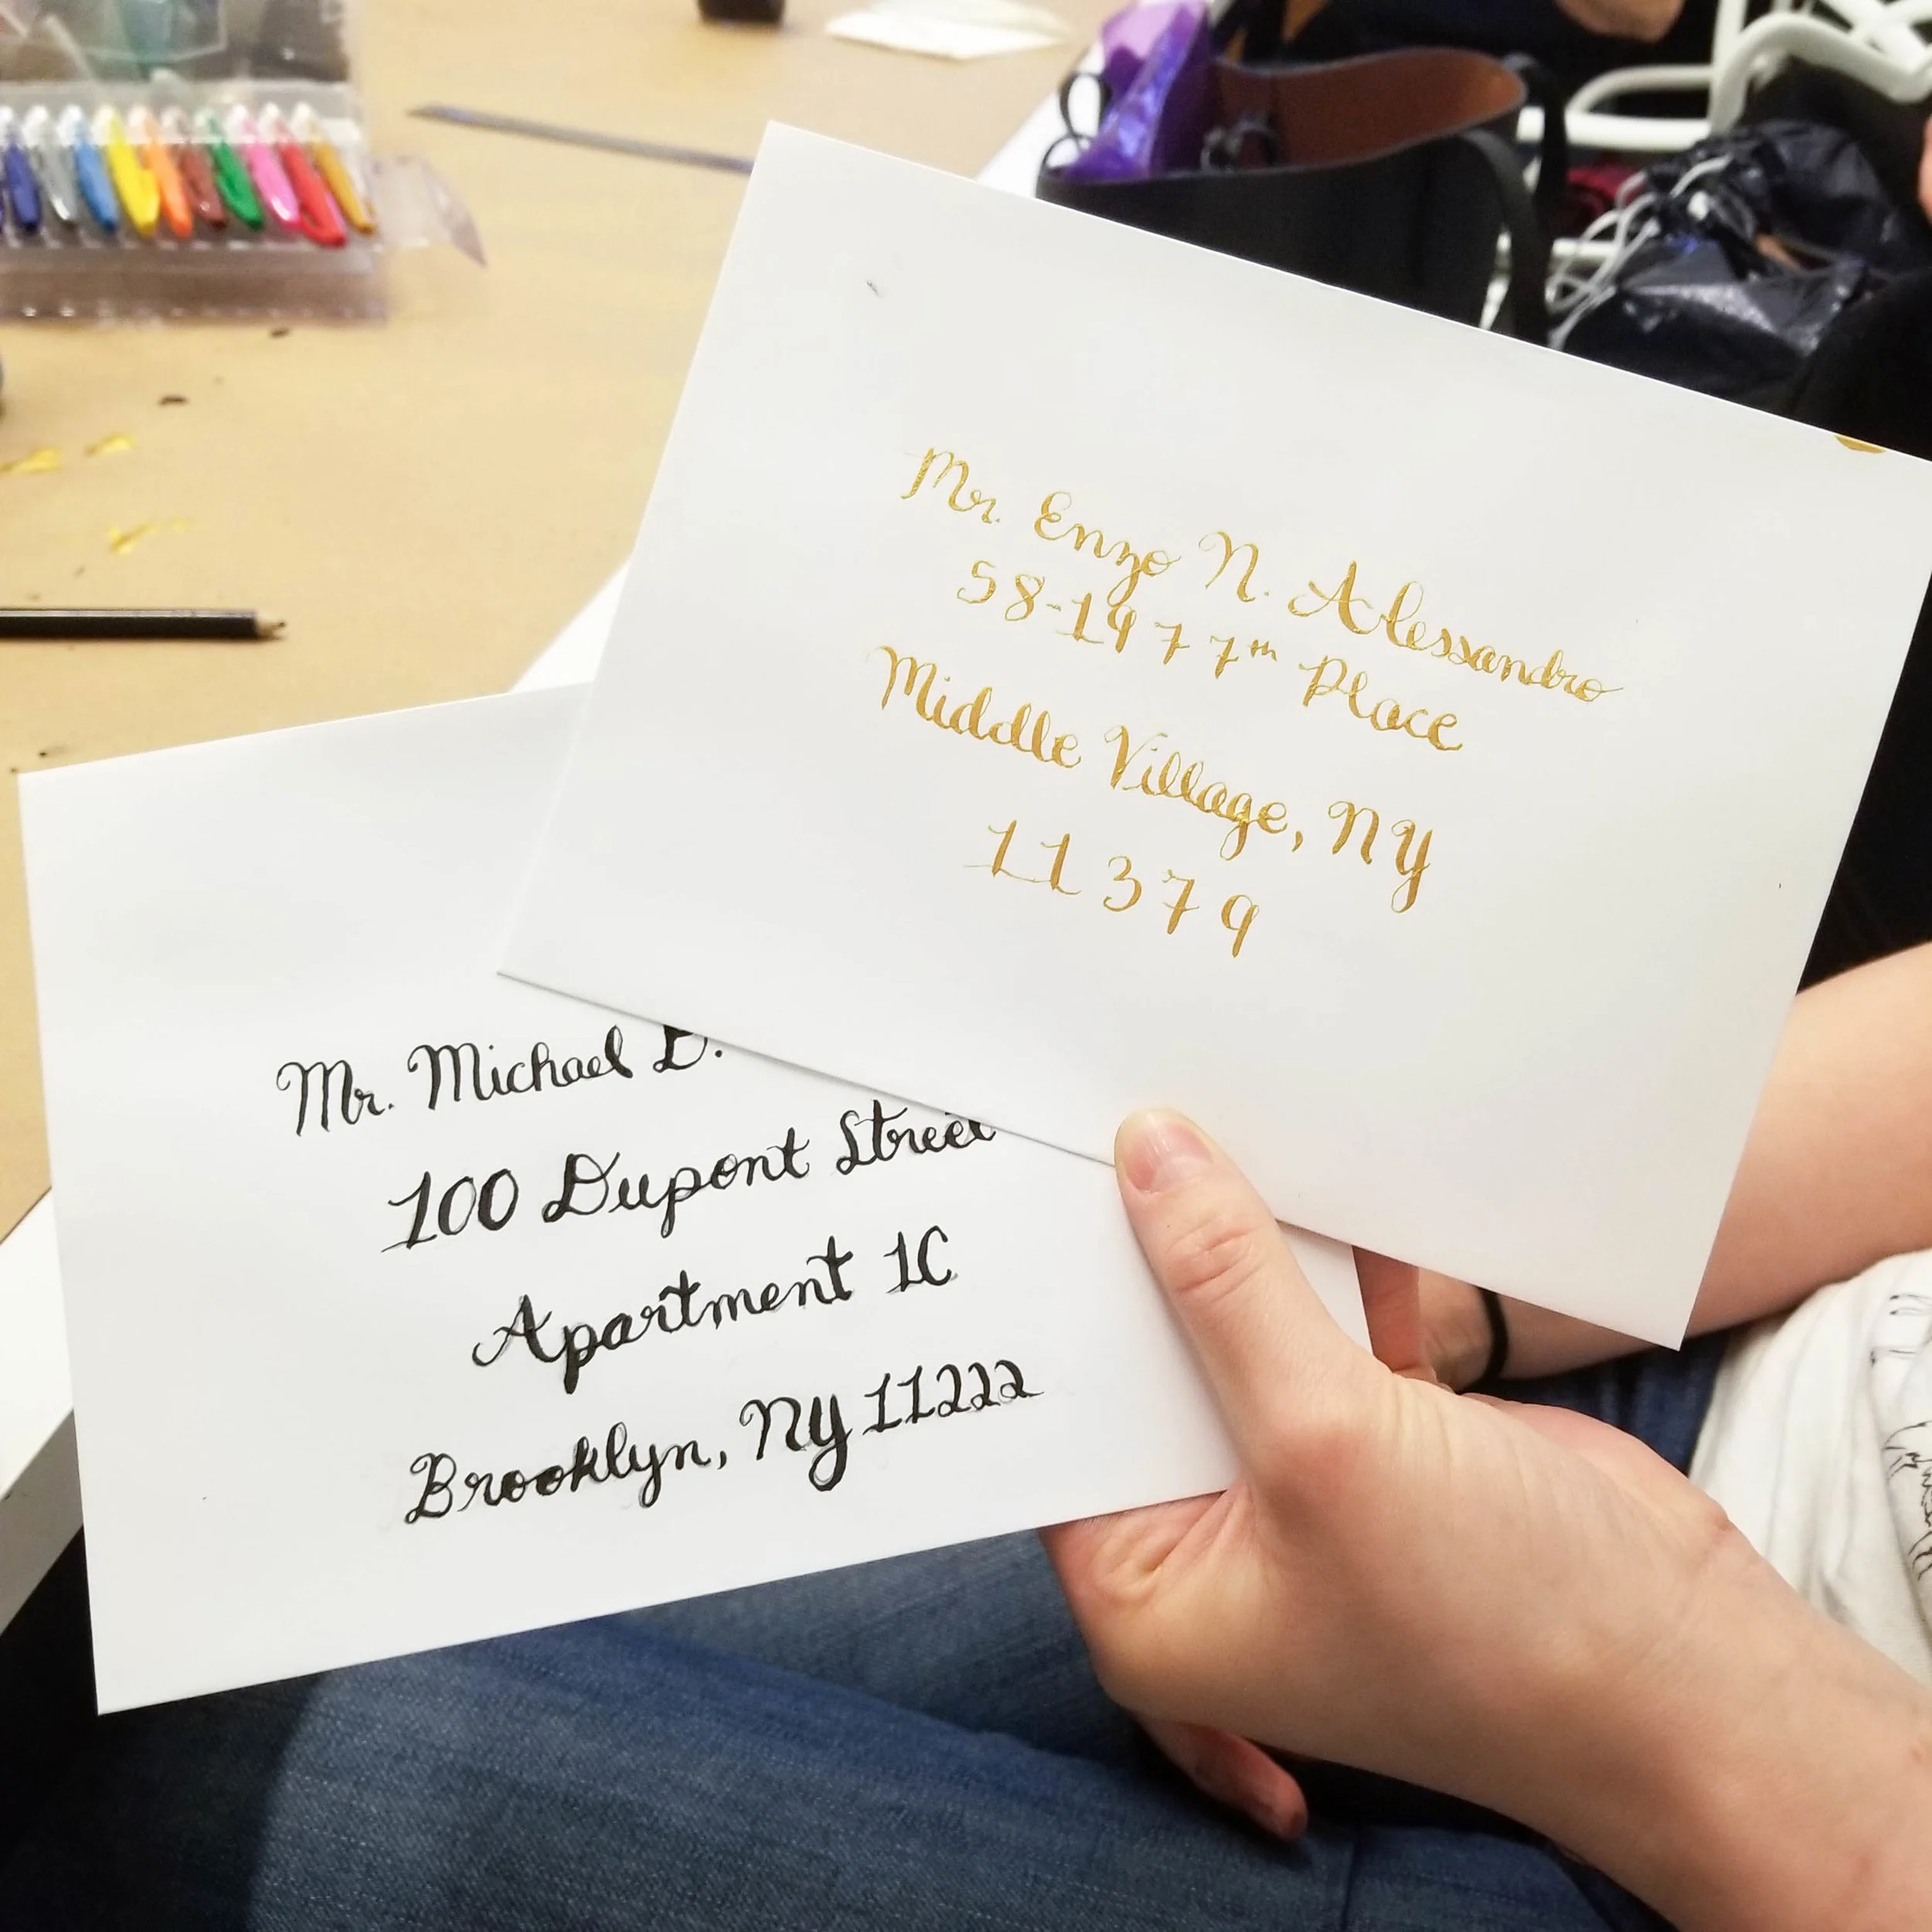 Mr. Enzo N. Alessandro
58-19 77th Place
Middle Village, NY
11379
Mr. Michael D.
100 Dupont Street
Apartment 1C
Brooklyn, NY 11222